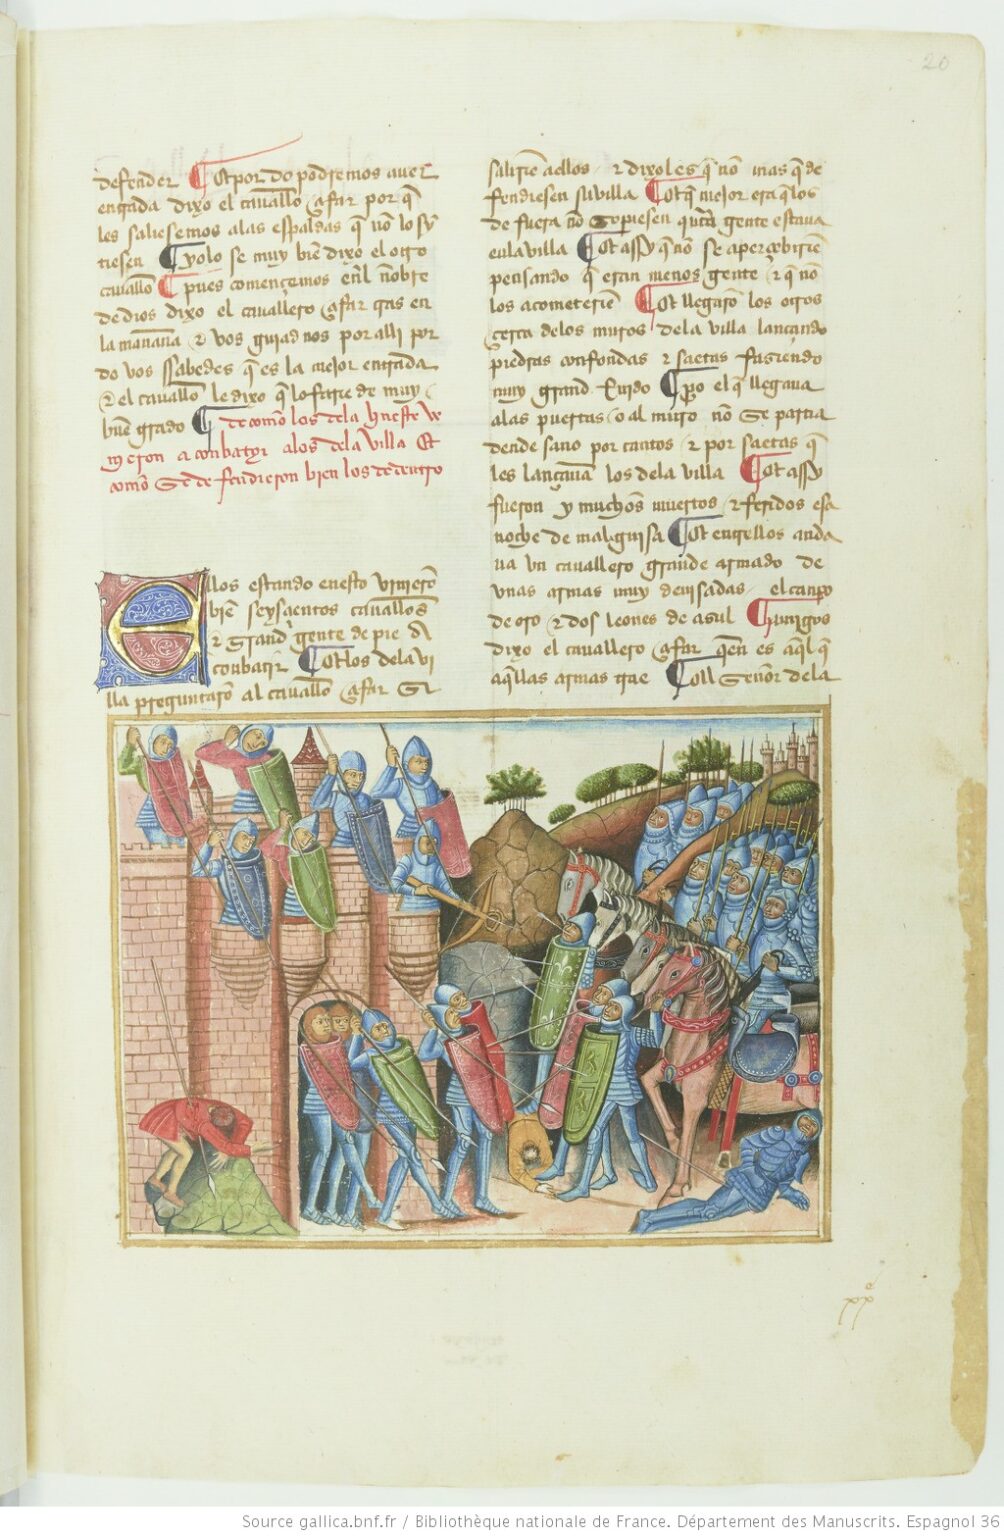 20
defender ¶ Et por do podremos auer
entrada dixo el cauall̃o çifar por q̃
les saliesemos alas espaldas q̃ non lo syn
tiesen ¶ yo lo se muy bie͂ dixo el otro
cauall̃o ¶ pues comencemos en͂l no͂bre
de dios dixo el cauallero çifar cras en
la man͂ana ⁊ vos guiad nos por alli por
do vos ssabedes q̃ es la mejor entrada
⁊ el cauall̃o le dixo q̃ lo farie de muy
bue͂ grado ¶ de como los dela hueste v
inieron a conbatyr alos dela villa Et
como se defendieron bien los de dentro
Ellos estando en esto vinierõ
bie͂ seysçientos cauallos
⁊ grand gente de pie a
conbatir ¶ Et los dela vi
lla preguntarõ al cauall̃o çifar si
salirie͂ a ellos ⁊ dixoles q̃ nõ mas q̃ de
fendiesen su villa ¶ Et q̃ mejor era q̃ los
de fuera nõ sopiesen qu͂ta gente estaua
en la villa ¶ Et assy q̃ nõ se aperçebirie͂
pensando q̃ eran menos gente ⁊ q̃ nõ
los acometerie͂ ¶ Et llegarõ los otros
çerca delos muros dela villa lançando
piedras con fondas ⁊ saetas faziendo
muy grand rruydo ¶ p̃o el q̃ llegaua
alas puertas o al muro nõ se partia
dende sano por cantos ⁊ por saetas q̃
les lançaua͂ los dela villa ¶ Et assy
fueron y muchos muertos ⁊ feridos esa
noche de mal guisa ¶ Et entrellos anda
ua vn cauallero grande armado de
vnas armas muy deuisadas el canpo
de oro ⁊ dos leones de asul ¶ amigos
dixo el cauallero çifar que͂ es aq̃l q̃
aq̃llas armas trae ¶ El señor dela
xxº
Source gallica.bnf.fr / Bibliothèque nationale de France. Département des Manuscrits. Espagnol 36